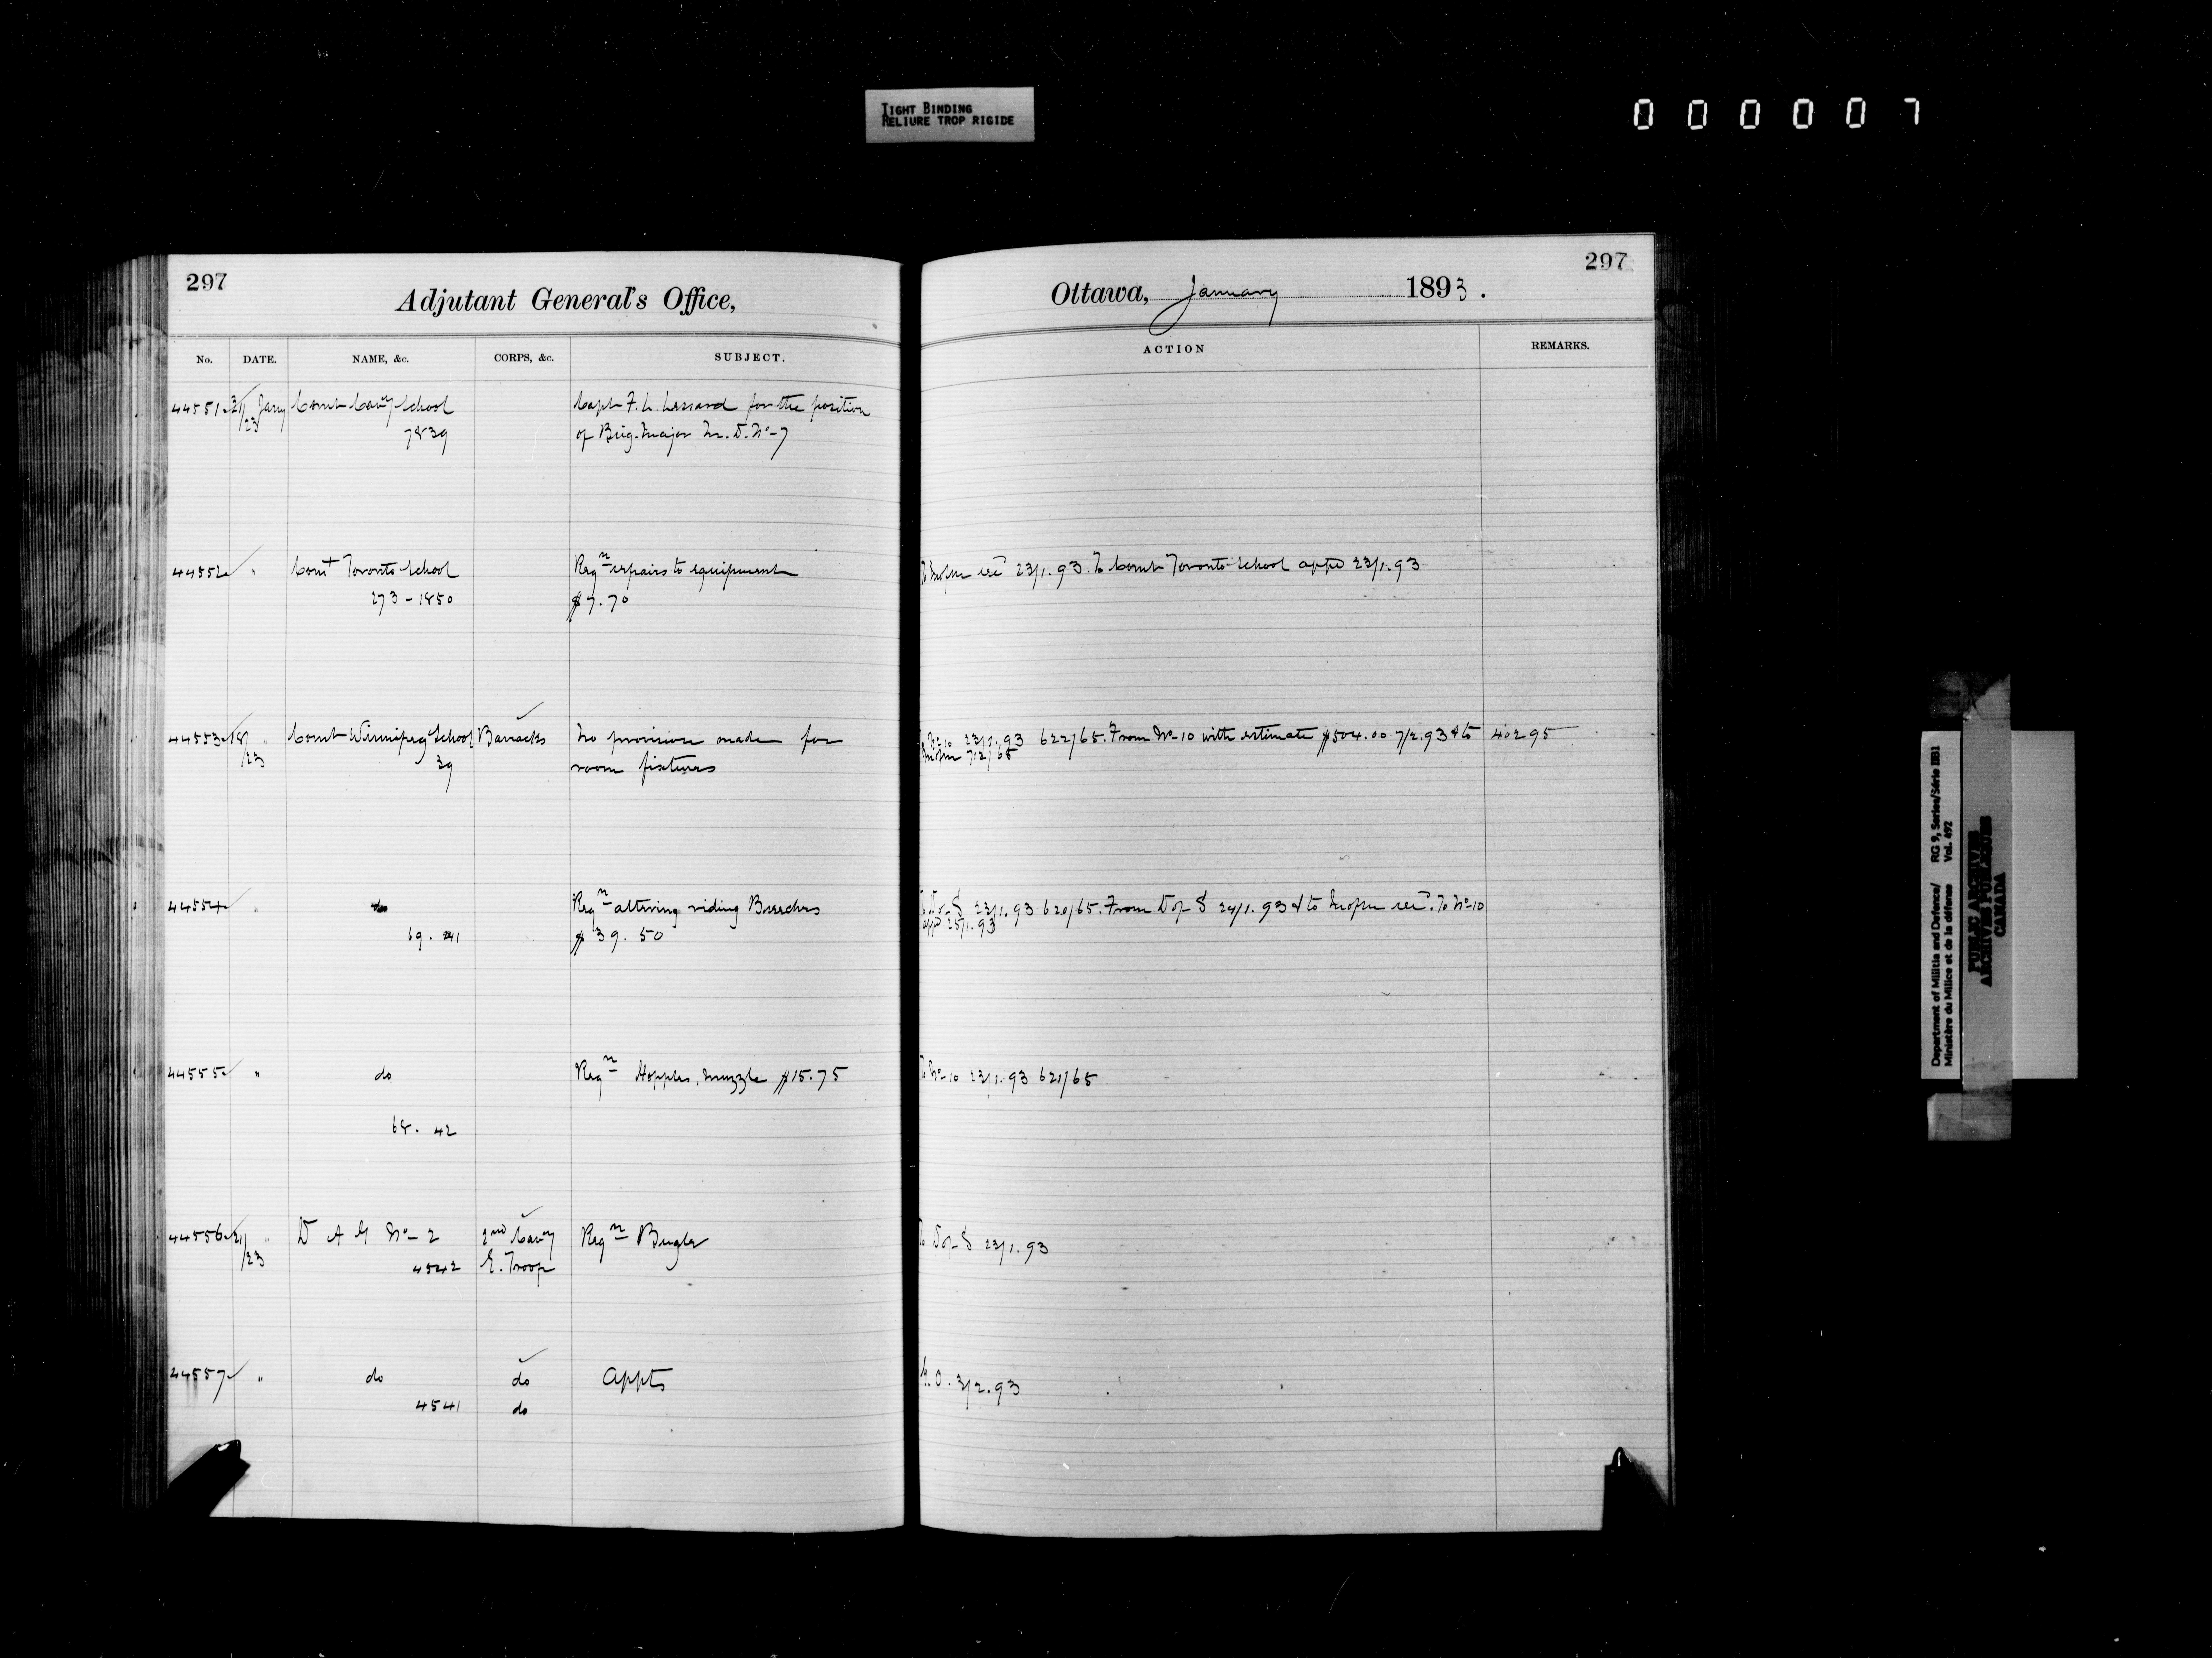 TIGHT BINDING
RELIURE TROP RIGIDE
000007
297
Adjutant General's Office,
No. DATE. NAME, &c. CORPS, &c. SUBJECT.
44551 21/23 Jany Comt Cavy School Capt F. L. Lessard for the position
7839 of Brig. Major M. D. No-7
44552 " Comt Toronto School Reqn repairs to equipment
273-1850 $7.70
44553 18/23 " Comt Winnipeg School Barracks No provision made for
39 room fixtures
44554 " do Reqn altering riding Breeches
69. 41 $39.50
44555 " do Reqn Hopples, muzzle $15.75
68. 42
44556 21/23 " D A G No-2 2nd Cavy Reqn Bugler
4542 E. Troop
44557 " do do Appts
4541 do
297
Ottawa, January 1893.
ACTION REMARKS.
23/1.93. To Comt Toronto School appd 23/1.93
No-10 23/1.93 622/65. From No-10 with estimate $504.00 7/2.93 & to 40295
712/65
D of S 23/1.93 620/65. From D of S 24/1.93 & to To No-10
appd 25/1.93
To No-10 23/1.93 621/65
To D of S 23/1.93
G.O. 3/2.93
Department of Militia and Defence/ RG 9, Series/Série IIB1
Ministère du Milice et de la défense Vol. 492
PUBLIC ARCHIVES
ARCHIVES PUBLIQUES
CANADA